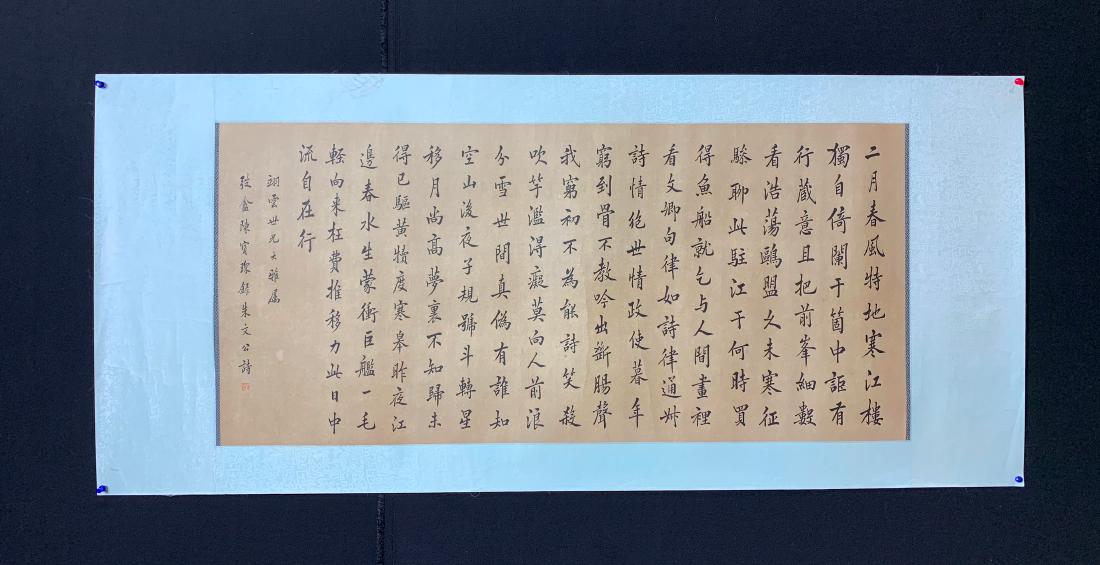 二月春風特地寒江樓
獨自倚闌干箇中詎有
行蔵意且把前峯細數
看浩蕩鷗盟久未寒征
驂聊此駐江干何時買
得魚船就乞与人間畫裡
看文卿句律如詩律通州
詩情絶世情政使暮年
窮到骨不教吟出斷腸聲
我窮初不為能詩笑殺
吹竽濫得癡莫向人前浪
分雪世間真偽有誰知
空山後夜子規號斗轉星
移月尚高夢裏不知歸未
得已驅黃犢度寒皋昨夜江
邊春水生蒙衝巨艦一毛
輕向来枉費推移力此日中
流自在行
翊雲世兄大雅屬
弢盦陳寶琛録朱文公詩